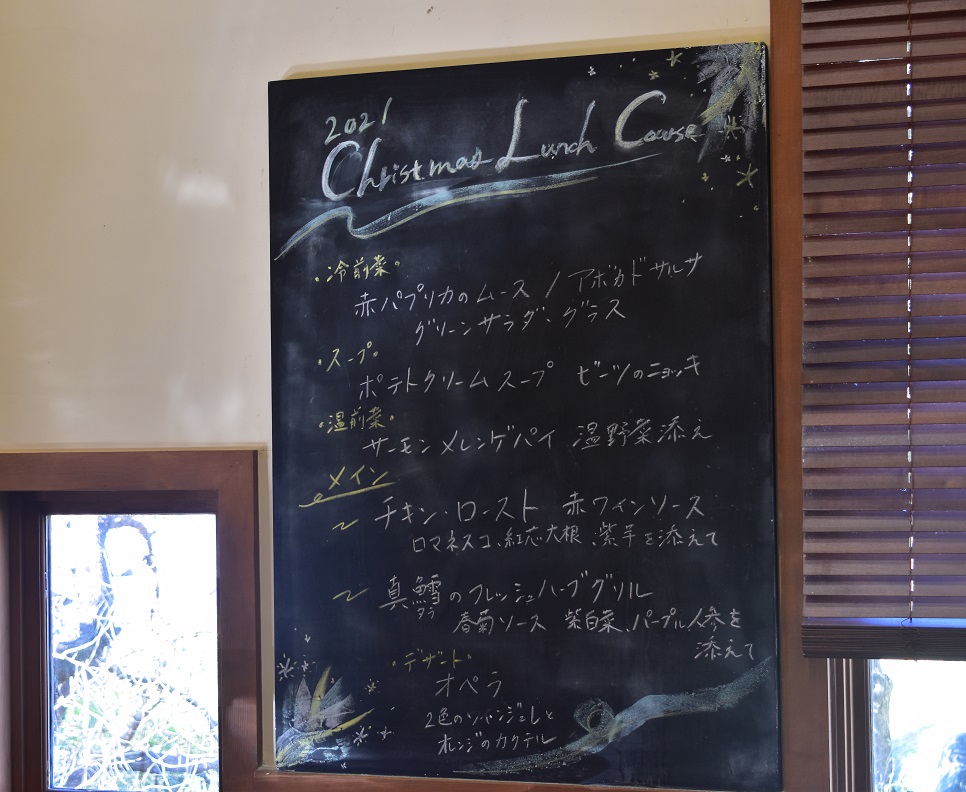 2021
Christmas Lunch Course
・冷前菜。
赤パプリカのムース / アボカドサルサ
グリーンサラダ、グラス
・スープ。
ポテトクリームスープ ビーツのニョッキ
・温前菜。
サーモンメレンゲパイ 温野菜添え
メイン
～ チキン・ロースト 赤ワインソース
ロマネスコ、紅芯大根、紫芋を添えて
～ 真鱈のフレッシュハーブグリル
タラ
春菊ソース 紫白菜、パープル人参を
添えて
・デザート・
オペラ
2色のワインジュレと
オレンジのカクテル